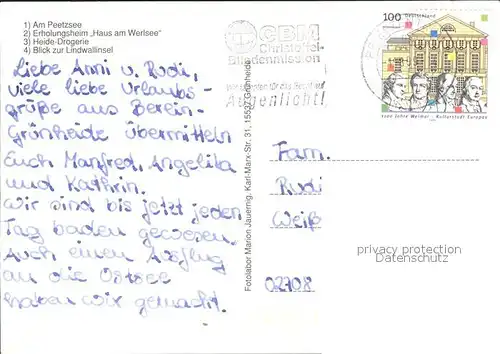 1) Am Peetzsee
2) Erholungsheim „Haus am Werlsee"
3) Heide-Drogerie
4) Blick zur Lindwallinsel
Liebe Anni u. Rudi,
viele liebe Urlaubs-
grüße aus Berlin-
Grünheide übermitteln
Euch Manfred, Angelika
und Kathrin.
Wir sind bis jetzt jeden
Tag baden gewesen.
Auch einen Ausflug
an die Ostsee
haben wir gemacht.
Fotolabor Marion Jauernig, Karl-Marx-Str. 31, 15537 Grünheide
CBM
Christoffel-
Blindenmission
Augenlicht!
100 Deutschland
1100 Jahre Weimar - Kulturstadt Europas
Fam.
Rudi
Weiß
02708
privacy protection
Datenschutz